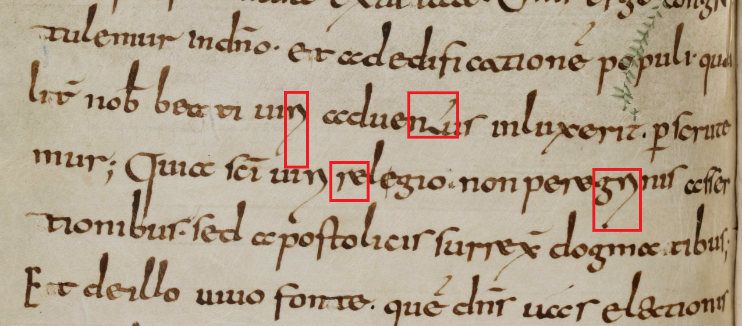 tulemur indño. et ad edificationẽ populi. qua
lit̃ nob̃ beati uiri aduentus inluxerit. p̱scrute
mur; Quia sc̃i uiri relegio. non peregrinis asser
tionibus. sed apostolicis surrex̃ dogmatibus;
Et deillo uiuo fonte. quẽ dñs uas electionis